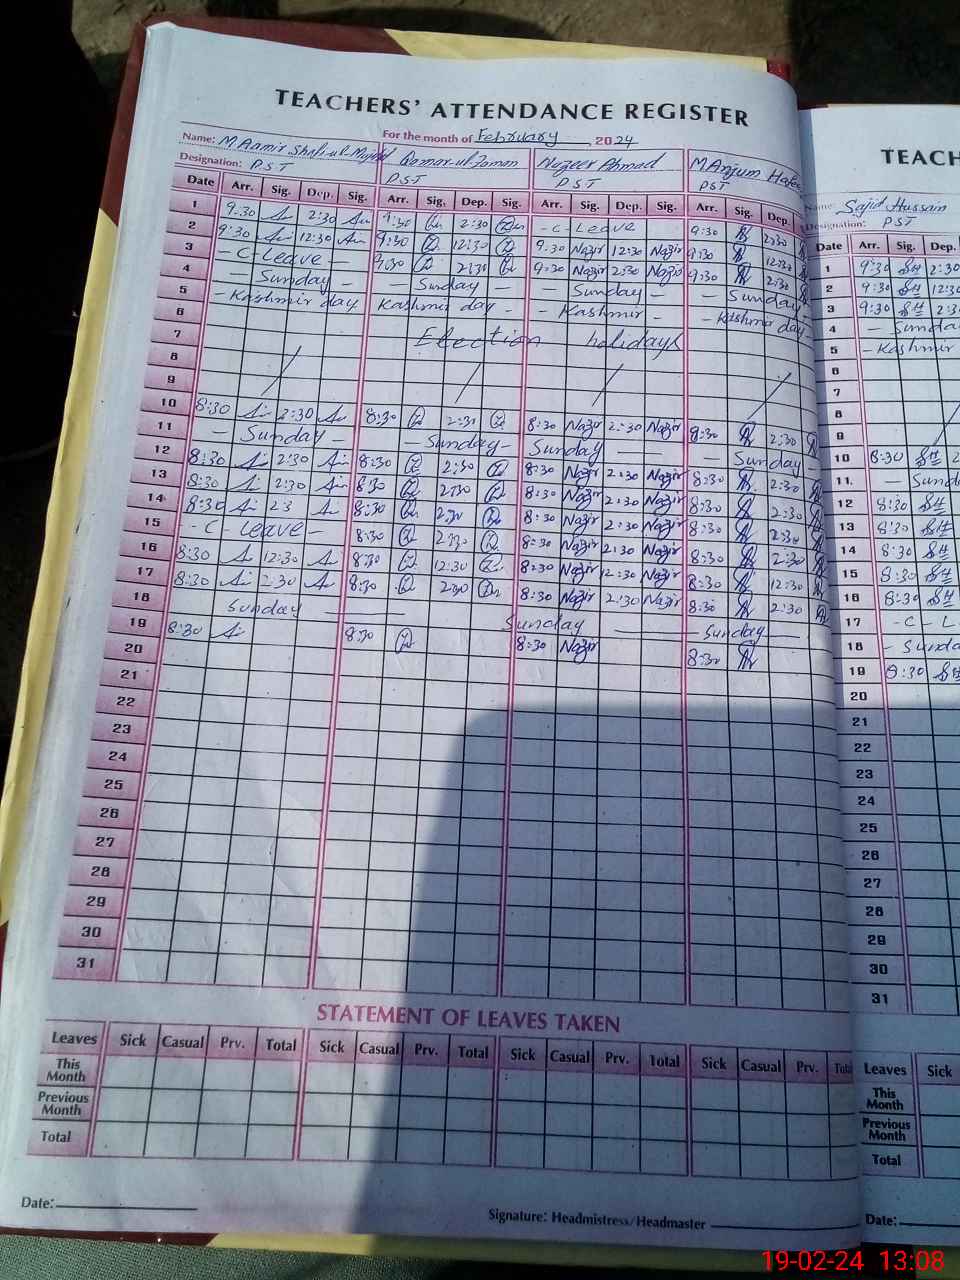 TEACHERS' ATTENDANCE REGISTER
For the month of February, 2024
Name: M Aamir Shah-ul- Qamar-ul-Zaman Nazeer Ahmad M Anjum
Designation: P.S.T PST PST PST
Date Arr. Sig. Dep. Sig. Arr. Sig. Dep. Sig. Arr. Sig. Dep. Sig. Arr. Sig. Dep
1 9:30 2:30 9:30 2:30 -C-Leave 9:30 2:30
2 9:30 12:30 9:30 12:30 9:30 Nazir 12:30 Nazir 9:30 12:30
3 -C-Leave- 9:30 2:30 9:30 Nazir 2:30 Nazir 9:30 2:30
4 - Sunday - - Sunday - - Sunday - - Sunday
5 - Kashmir day Kashmir day - - Kashmir - - Kashmir day-
6
7 Election holidays
8
9
10 8:30 2:30 8:30 2:30 8:30 Nazir 2:30 Nazir 8:30 2:30
11 - Sunday - - Sunday - Sunday - Sunday
12 8:30 2:30 8:30 2:30 8:30 Nazir 2:30 Nazir 8:30 2:30
13 8:30 2:30 8:30 2:30 8:30 Nazir 2:30 Nazir 8:30 2:30
14 8:30 23 8:30 2:30 8:30 Nazir 2:30 Nazir 8:30 2:30
15 -C-Leave- 8:30 2:30 8:30 Nazir 2:30 Nazir 8:30 2:30
16 8:30 12:30 8:30 12:30 8:30 Nazir 12:30 Nazir 8:30 12:30
17 8:30 2:30 8:30 2:30 8:30 Nazir 2:30 Nazir 8:30 2:30
18 Sunday Sunday Sunday
19 8:30 8:30 8:30 Nazir 8:30
20
21
22
23
24
25
26
27
28
29
30
31
STATEMENT OF LEAVES TAKEN
Leaves Sick Casual Prv. Total Sick Casual Prv. Total Sick Casual Prv. Total Sick Casual Prv.
This Month
Previous Month
Total
Date:
Signature: Headmistress/Headmaster
TEACH
Name: Sajid Hussain
Designation: PST
Date Arr. Sig. Dep.
1 9:30 SH 2:30
2 9:30 SH 12:30
3 9:30 SH 2:3
4 - Sunda
5 - Kashmir
6
7
8
9
10 8:30 SH 2
11. - Sund
12 8:30 SH
13 8:30 SH
14 8:30 SH
15 8:30 SH
16 8:30 SH
17 -C- L
18 - Sunda
19 8:30 SH
20
21
22
23
24
25
26
27
28
29
30
31
Leaves Sick
This Month
Previous Month
Total
Date:
19-02-24 13:08